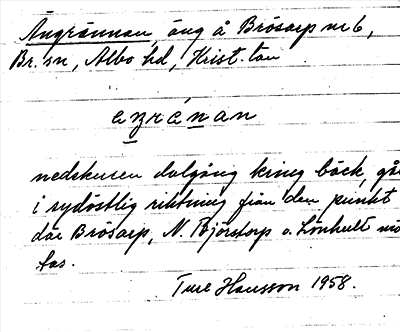 Ängrännan, äng å Brösarp nr 6,
Br. sn, Albo hd, Krist. län
ęŋręnan
nedskuren dalgång kring bäck, går
i sydöstlig riktning från den punkt
där Brösarp, N. Björstorp o. Lönhult mö
tas.
Ture Hansson 1958.